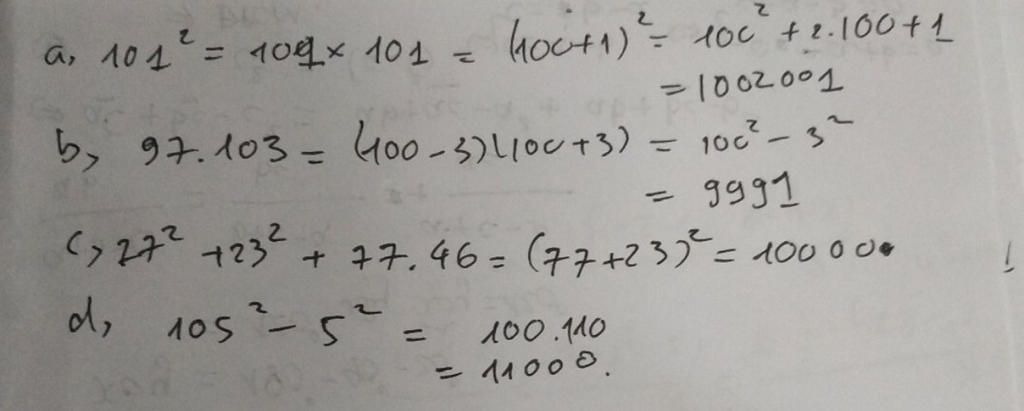 a, 101² = 101 × 101 = (100+1)² = 100² + 2.100 + 1
= 1002001
b, 97.103 = (100 - 3)(100 + 3) = 100² - 3²
= 9991
c, 27² + 23² + 77.46 = (77+23)² = 10000
d, 105² - 5² = 100.110
= 11000.